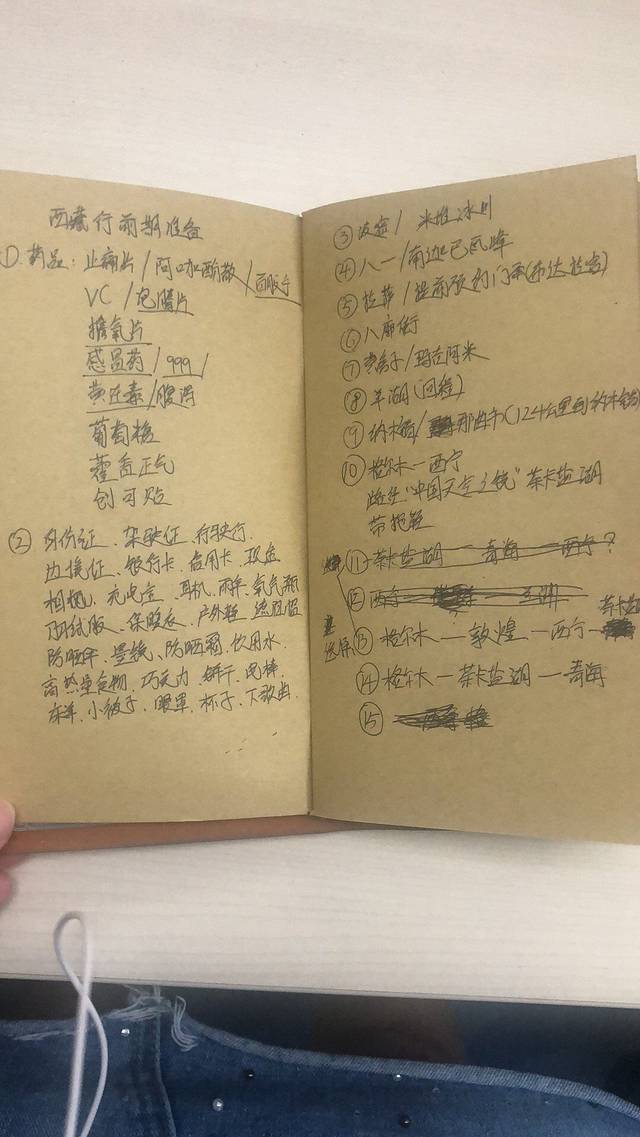 西藏行前期准备
① 药品：止痛片/阿咖酚散/
VC/
携氧片
感冒药/999/
黄连素/腹泻
葡萄糖
藿香正气
创可贴
② 身份证、驾驶证、行驶证
边境证、银行卡、信用卡、现金
相机、充电宝、耳机、雨伞、氧气瓶
冲锋服、保暖衣、户外鞋、遮阳帽
防晒伞、墨镜、防晒霜、饮用水
高热量食物、巧克力、饼干、
床单、小被子、眼罩、杯子、下歌曲
③ 波密/米堆冰川
④ 八一/南迦巴瓦峰
⑤ 拉萨/提前预约门票(布达拉宫)
⑥ 八廓街
⑦ /玛吉阿米
⑧ 羊湖(回程)
⑨ 纳木错/那曲市(124公里到纳木错)
⑩ 格尔木—西宁
路经“中国天空之镜”茶卡盐湖
带拖鞋
⑪ 茶卡盐湖—青海—西宁？
⑫ 西宁
选择 ⑬ 格尔木—敦煌—西宁 茶卡
⑭ 格尔木—茶卡盐湖—青海
⑮